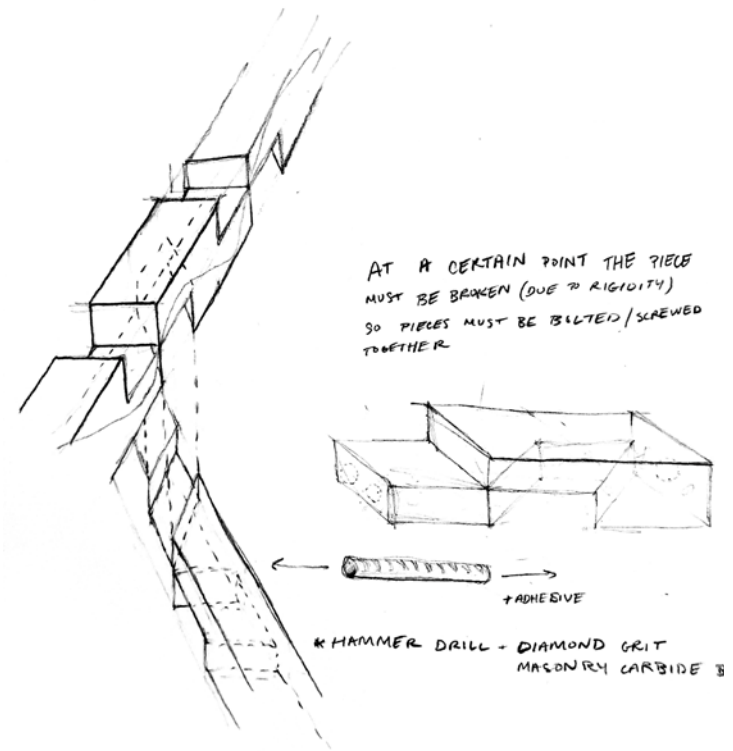 AT A CERTAIN POINT THE PIECE
MUST BE BROKEN (DUE TO RIGIDITY)
SO PIECES MUST BE BOLTED/SCREWED
TOGETHER
+ ADHESIVE
* HAMMER DRILL + DIAMOND GRIT
MASONRY CARBIDE